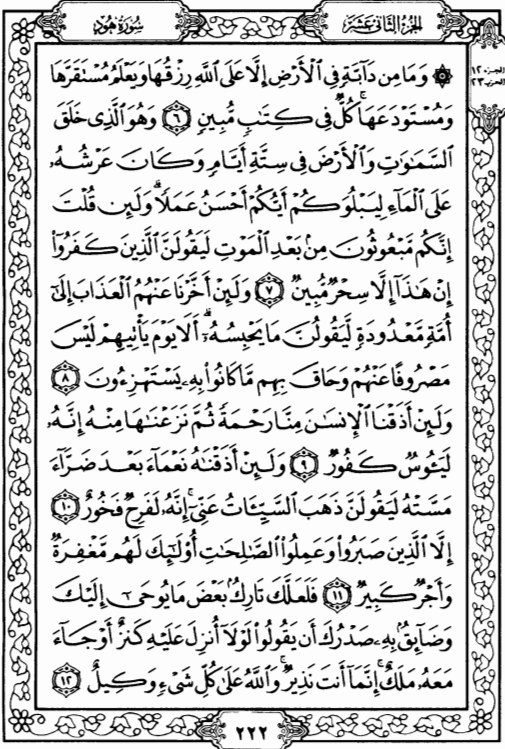 الجزء الثاني عشر
سورة هود
الجزء ١٢
الحزب ٢٣
۞ وَمَا مِن دَآبَّةٍ فِي ٱلْأَرْضِ إِلَّا عَلَى ٱللَّهِ رِزْقُهَا وَيَعْلَمُ مُسْتَقَرَّهَا
وَمُسْتَوْدَعَهَاۚ كُلٌّ فِي كِتَٰبٍ مُّبِينٍ ۝٦ وَهُوَ ٱلَّذِي خَلَقَ
ٱلسَّمَٰوَٰتِ وَٱلْأَرْضَ فِي سِتَّةِ أَيَّامٍ وَكَانَ عَرْشُهُۥ
عَلَى ٱلْمَآءِ لِيَبْلُوَكُمْ أَيُّكُمْ أَحْسَنُ عَمَلًاۗ وَلَئِن قُلْتَ
إِنَّكُم مَّبْعُوثُونَ مِنۢ بَعْدِ ٱلْمَوْتِ لَيَقُولَنَّ ٱلَّذِينَ كَفَرُوٓا۟
إِنْ هَٰذَآ إِلَّا سِحْرٌ مُّبِينٌ ۝٧ وَلَئِنْ أَخَّرْنَا عَنْهُمُ ٱلْعَذَابَ إِلَىٰٓ
أُمَّةٍ مَّعْدُودَةٍ لَّيَقُولُنَّ مَا يَحْبِسُهُۥٓۗ أَلَا يَوْمَ يَأْتِيهِمْ لَيْسَ
مَصْرُوفًا عَنْهُمْ وَحَاقَ بِهِم مَّا كَانُوا۟ بِهِۦ يَسْتَهْزِءُونَ ۝٨
وَلَئِنْ أَذَقْنَا ٱلْإِنسَٰنَ مِنَّا رَحْمَةً ثُمَّ نَزَعْنَٰهَا مِنْهُ إِنَّهُۥ
لَيَـُٔوسٌ كَفُورٌ ۝٩ وَلَئِنْ أَذَقْنَٰهُ نَعْمَآءَ بَعْدَ ضَرَّآءَ
مَسَّتْهُ لَيَقُولَنَّ ذَهَبَ ٱلسَّيِّـَٔاتُ عَنِّيٓۚ إِنَّهُۥ لَفَرِحٌ فَخُورٌ ۝١٠
إِلَّا ٱلَّذِينَ صَبَرُوا۟ وَعَمِلُوا۟ ٱلصَّٰلِحَٰتِ أُو۟لَٰٓئِكَ لَهُم مَّغْفِرَةٌ
وَأَجْرٌ كَبِيرٌ ۝١١ فَلَعَلَّكَ تَارِكٌۢ بَعْضَ مَا يُوحَىٰٓ إِلَيْكَ
وَضَآئِقٌۢ بِهِۦ صَدْرُكَ أَن يَقُولُوا۟ لَوْلَآ أُنزِلَ عَلَيْهِ كَنزٌ أَوْ جَآءَ
مَعَهُۥ مَلَكٌۚ إِنَّمَآ أَنتَ نَذِيرٌۚ وَٱللَّهُ عَلَىٰ كُلِّ شَىْءٍ وَكِيلٌ ۝١٢
٢٢٢